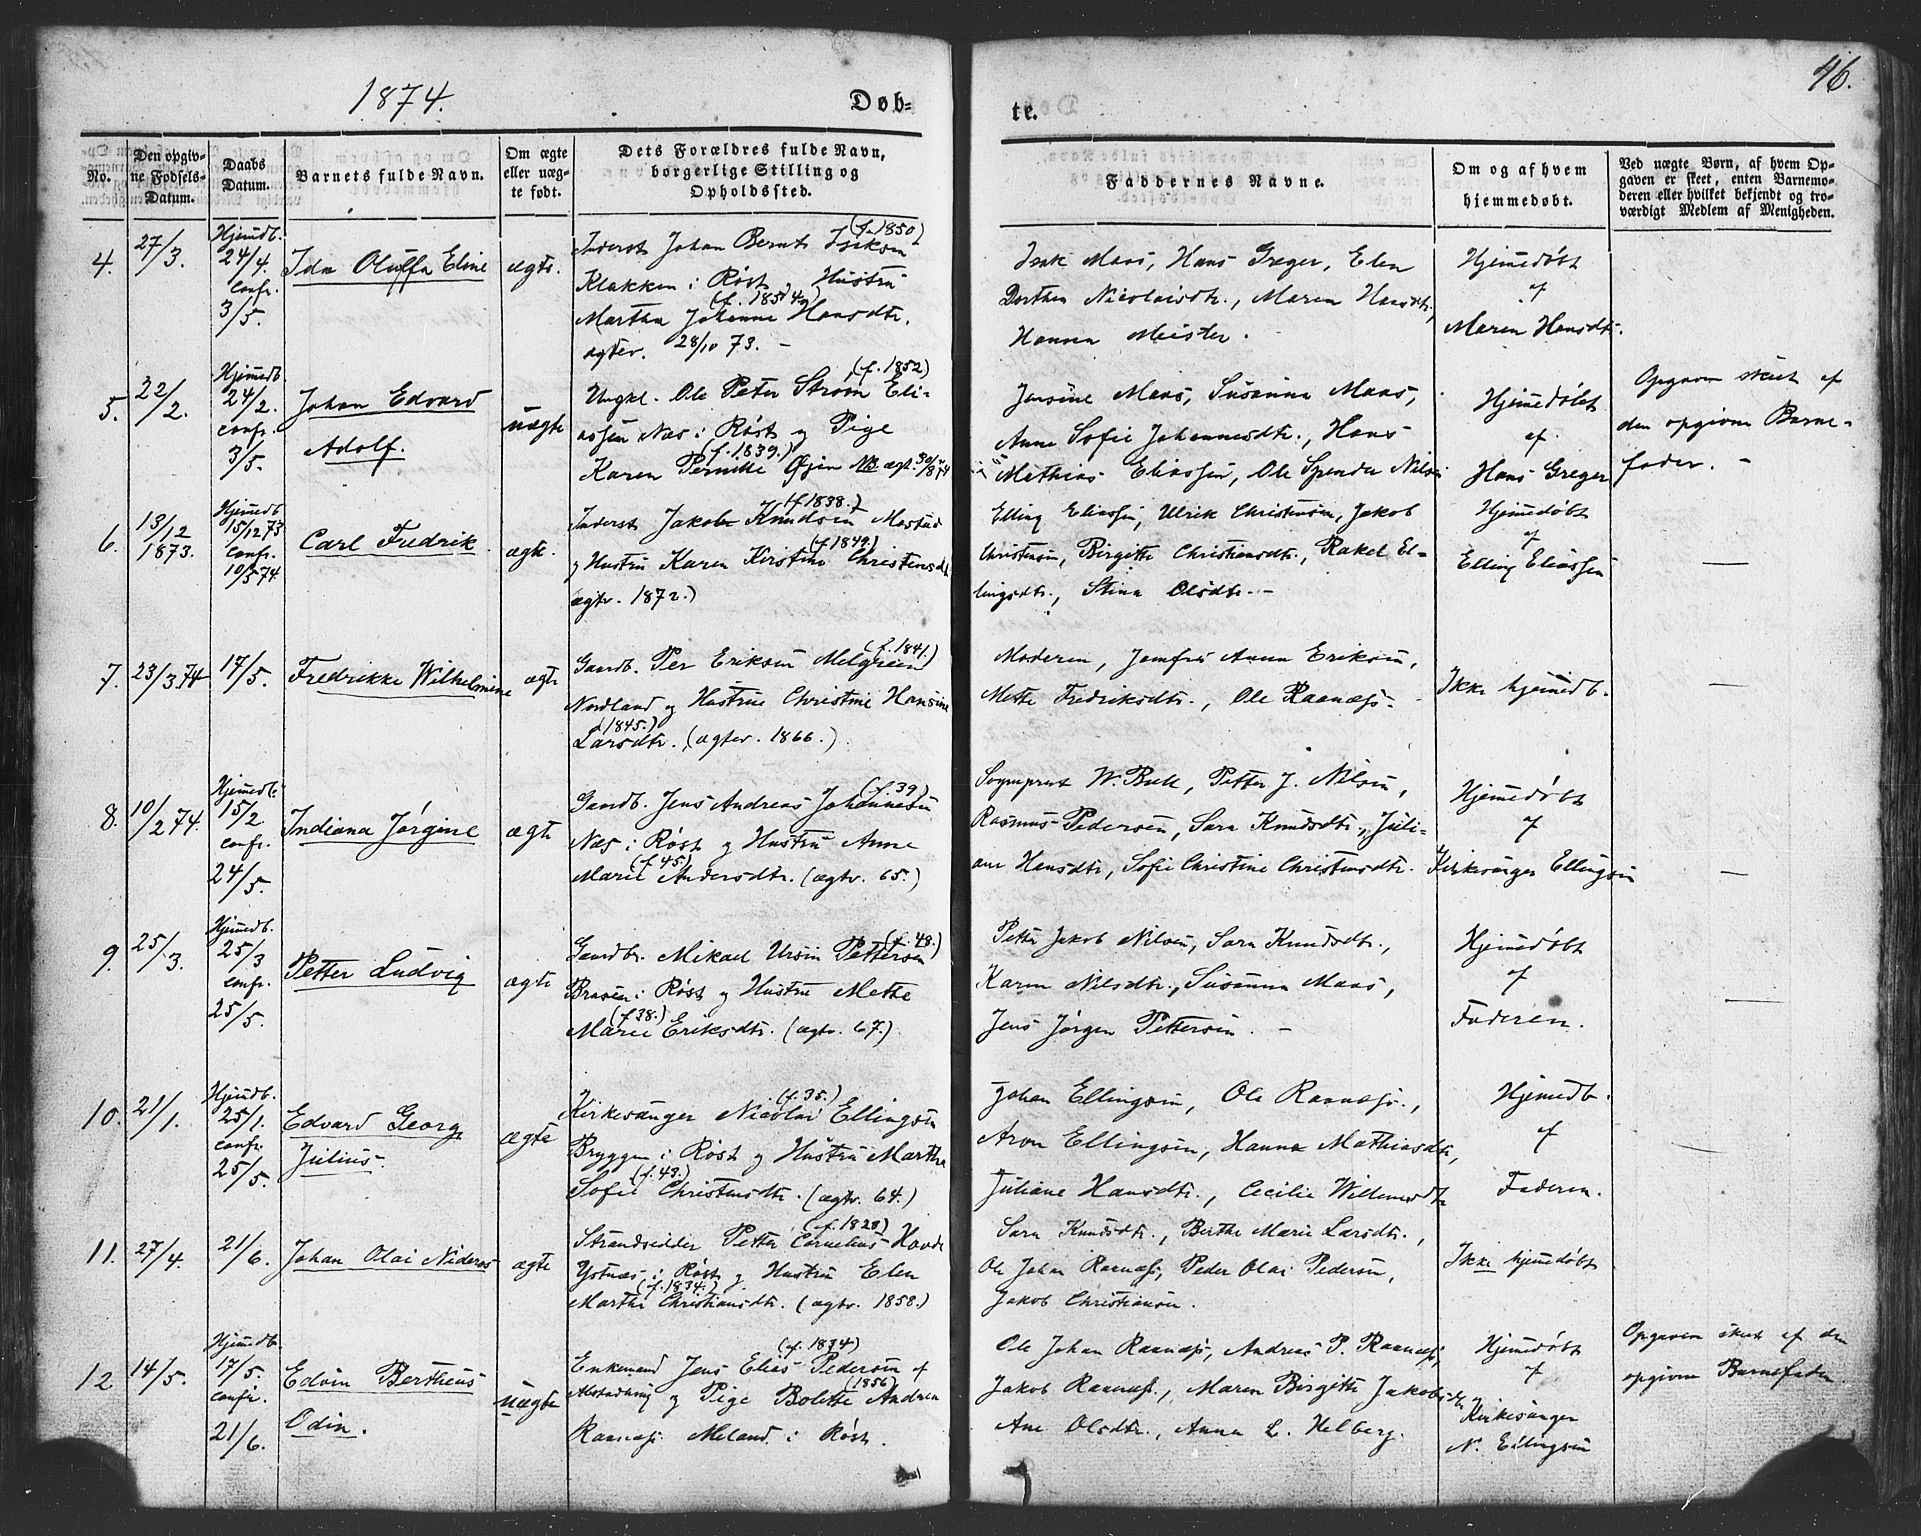 1874.
Døb-
te.
46.
No.
Den opgiv-
ne Fødsels-
Datum.
Daabs
Datum.
Barnets fulde Navn.
Om ægte
eller uæg-
te født.
Dets Forældres fulde Navn,
borgerlige Stilling og
Opholdssted.
Faddernes Navne.
Om og af hvem
hjemmedøbt.
Ved uægte Børn, af hvem Op-
gaven er skeet, enten Barnemo-
deren eller hvilket bekjendt og tro-
værdigt Medlem af Menigheden.
4.
27/3.
Hjemdb.
24/4.
Confr.
3/5.
Ida Oluffa Eline
ægte.
(f. 1850)
Inderst Johan Bernt Isaksen
Klakken i Røst, Hustru
(f. 1851
Martha Johanne Hansdtr.
ægtev. 28/10 73. –
Isak Maas, Hans Greger, Elen
Dorthea Nicolaisdtr., Maren Hansdtr.,
Hanna Meister.
Hjemmedøbt
af
Maren Hansdtr.
5.
22/2.
Hjemedb.
24/2.
confr.
3/5.
Johan Edvard
Adolf.
uægte
(f. 1852)
Ungkl. Ole Peter Strøm Eli-
assen Næs i Røst og Pige
(f. 1839.)
Karen Pernille
Jensine Maas, Susanna Maas,
Anne Sofie Johannesdtr., Hans
Mathias Eliassen, Ole Spender Nilsen
Hjemedøbt
af
Hans Greger
Opgaven skeet af
den opgivne Barne-
fader. –
6.
13/12
1873.
Hjemedb.
15/12 73
confr.
10/5 74.
Carl Fredrik
ægte.
(f. 1838.)
Inderst Jakob Knudsen Mostad
(f. 1849.)
og Hustru Karen Kirstine Christensdtr
ægtv. 1872.)
Elling Eliassen, Ulrik Christensen, Jakob
Christensen, Birgitte Christiansdtr., Rakel El-
lingsdtr., Stina Olsdtr. –
Hjemedøbt
af
Elling Eliassen
—
7.
23/3. 74
17/5.
Fredrikke Wilhelmine
ægte
(f. 1841.)
Gaardb. Per Eriksen Melgreen
Nordland og Hustrue Christine Hansine
(1845.)
Larsdtr. (ægtev. 1866.)
Moderen, Jomfru Anna Eriksen,
Mette Fredriksdtr., Ole Raanæs. –
Ikke hjemedb.
—
8.
10/2 74.
Hjemedb.
15/2.
confr.
24/5.
Indiana Jørgine
ægte
(f. 39)
Gaardb. Jens Andreas Johannesen
Næs i Røst og Hustru Anne
(f. 45)
Marie Andersdtr. (ægtv. 65.)
Sogneprest W. Buck, Petter J. Nilsen,
Rasmus Pedersen, Sara Knudsdtr., Juli-
ane Hansdtr, Sofie Christine Christensdtr.
Hjemedøbt
af
Kirkesanger Ellingsen
—
9.
25/3.
Hjemedb.
25/3
confr.
25/5.
Petter Ludvig
ægte
(f. 48.)
Gaardbr. Mikael Ursin Pettersen
i Røst og Hustru Mette
(f. 38.)
Marie Eriksdtr. (ægtv. 67.)
Petter Jakob Nilsen, Sara Knudsdtr.,
Karen Nilsdtr., Susanna Maas,
Jens Jørgen Pettersen. –
Hjemedøbt
af
Faderen.
—
10.
21/1.
Hjemdb.
25/1.
confr.
25/5.
Edvard Georg
Julius.
ægte
(f. 35.)
Kirkesanger Nicolai Ellingsen
Bryggen i Røst og Hustru Martha
(f. 43.)
Sofie Christensdtr. (ægtv. 64.)
Johan Ellingsen, Ole Raanæs.,
Aron Ellingsen, Hanna Mathiasdtr,
Juliane Hansdtr., Cecilie Willumsdtr
Hjemedb.
af
Faderen.
11.
27/4.
21/6.
Johan Olai Nideros
ægte
(f. 1828)
Strandsidder Petter Cornelius Hovde
Ystnæs, i Røst og Hustru Elen
(f. 1834.)
Martha Christiansdtr. (ægtv. 1858.)
Sara Knudsdtr., Berthe Marie Larsdtr.,
Ole Johan Raanæs, Peder Olai Pedersen,
Jakob Christiansen.
Ikke hjemedøbt
12
14/5.
Hjemdb.
17/5.
confr.
21/6.
Edvin Bertheus
Odin.
uægte
(f. 1834)
Enkemand Jens Elias Pedersen af
(1856)
og Pige Bolette Andrea
Raanæs Meland i Røst.
Ole Johan Raanæs, Andreas P. Raanæs,
Jakob Raanæs., Maren Birgitte Jakobsdtr
Ane Olsdtr., Anna L. Helberg.
Hjemedøbt
af
Kirkesanger
N. Ellingsen
Opgaven skeet af den
opgivne Barnefader.